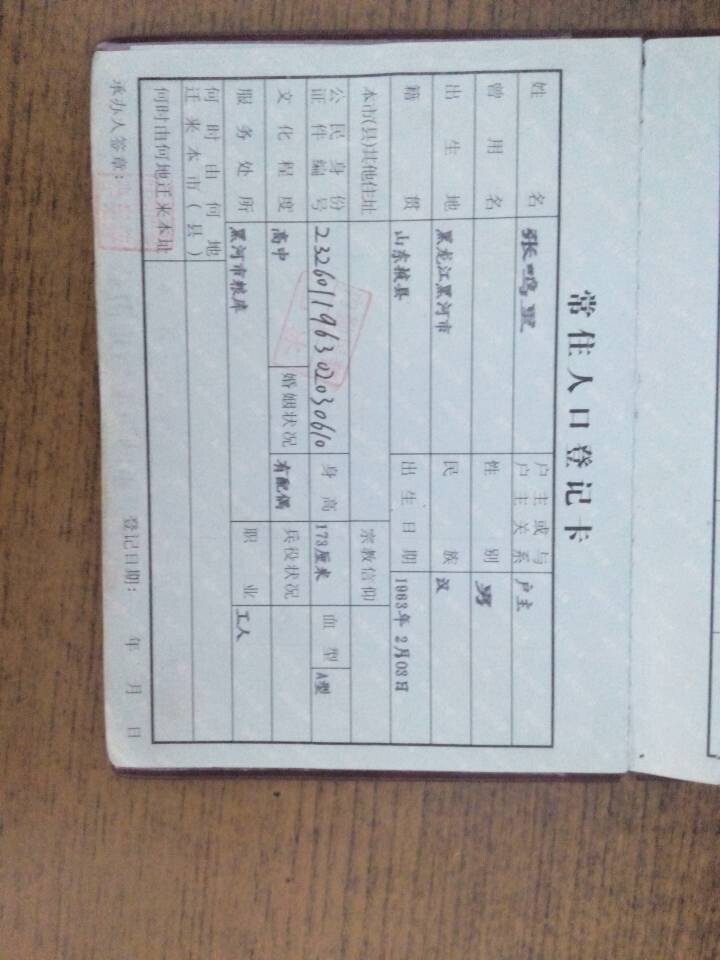 常住人口登记卡
姓 名 张鸣
户主或与户主关系 户主
曾用名
性 别 男
出生地 黑龙江黑河市
民 族 汉
籍 贯 山东掖县
出生日期 1963年2月03日
本市(县)其他住址
宗教信仰
公民身份证件编号 232601196302030610
身 高 173厘米
血 型 A型
文化程度 高中
婚姻状况 有配偶
兵役状况
服务处所 黑河市粮库
职 业 工人
何时由何地迁来本市(县)
何时由何地迁来本址
承办人签章:
登记日期: 年 月 日